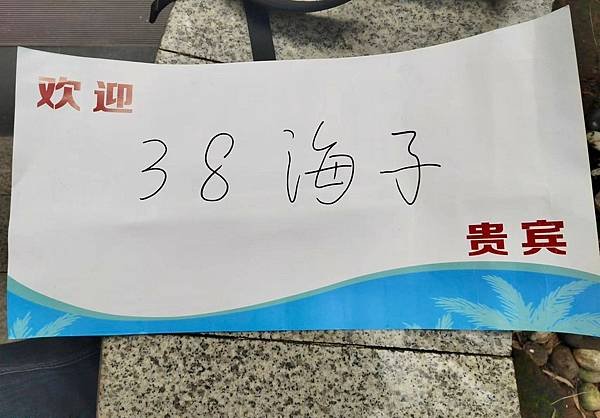 欢迎
38 海子
贵宾